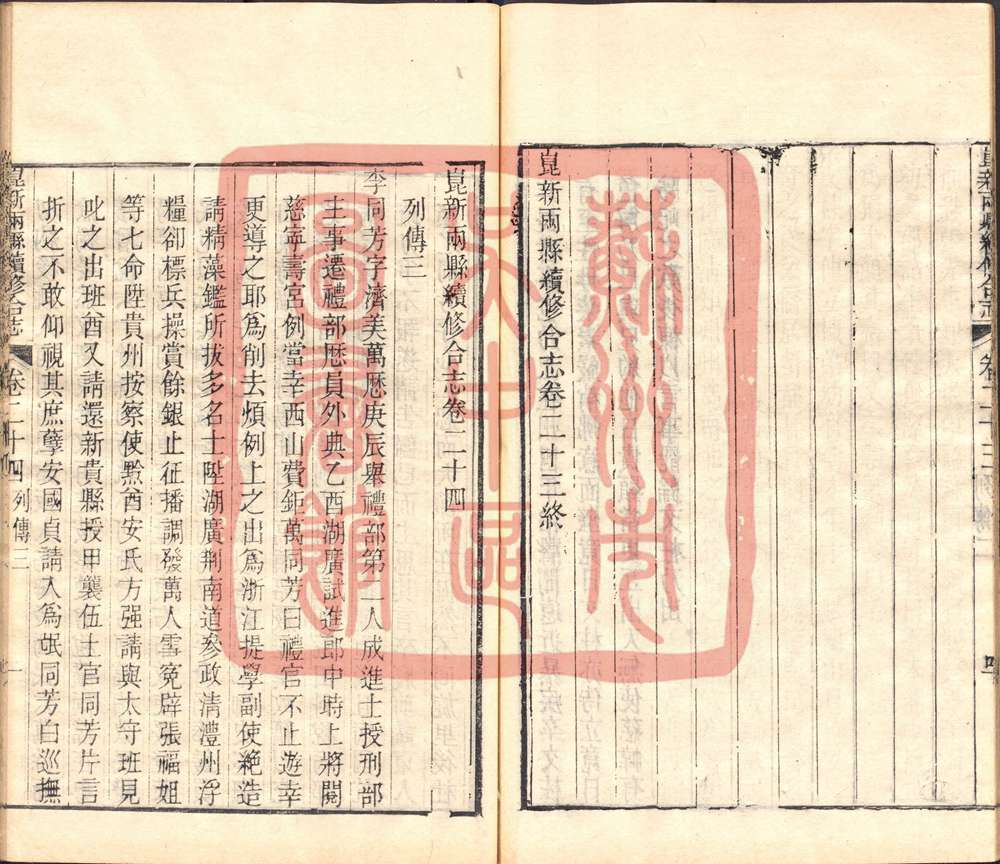 崑新兩縣續修合志卷二十三終
崑新兩縣續修合志卷二十四
列傳三
李同芳字濟美萬歷庚辰舉禮部第二人成進士授刑部
主事遷禮部歷員外典乙酉湖廣試進郎中時上將閱
慈寧壽宮例當幸西山費鉅萬同芳曰禮官不止遊幸
更導之耶爲削去煩例上之出爲浙江提學副使絶造
請精藻鑑所拔多名士陞湖廣荆南道參政清澧州浮
糧卻標兵操賞餘銀止征播調發萬人雪寃辟張福姐
等七命陞貴州按察使黔酋安氏方强請與太守班見
叱之出班酋又請還新貴縣授甲襲伍土官同芳片言
折之不敢仰視其庶孽安國貞請入爲氓同芳白巡撫
崑新兩縣續修合志 卷二十四 列傳三 一